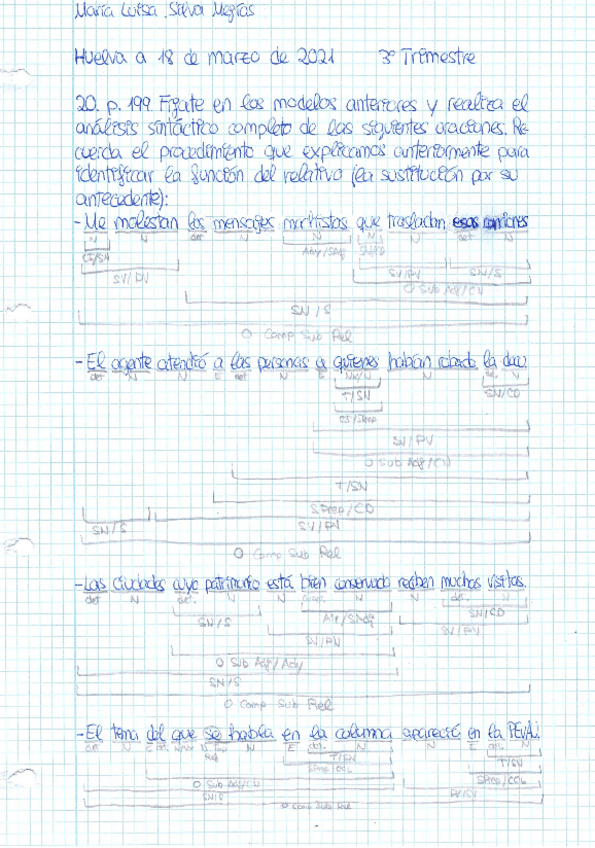 María Luisa Silva Megías
Huelva a 18 de marzo de 2021 3º Trimestre
20. p. 199. Fíjate en los modelos anteriores y realiza el
análisis sintáctico completo de las siguientes oraciones. Re-
cuerda el procedimiento que explicamos anteriormente para
identificar la función del relativo (la sustitución por su
antecedente):
- Me molestan los mensajes machistas que trasladan esas canciones
N N det N N N N det N
CI/SN Ady/SAdj SN/CD
SV/PV SV/PV SN/S
O Sub Adj/CN
SN/S
O Comp Sub Rel
- El agente atendió a las personas a quienes habían robado la
det N N E det N E N N
T/SN SN/CD
SV/PV
O Sub Adj/CN
T/SN
SPrep/CD
SN/S SV/PV
O Comp Sub Rel
- Las ciudades cuyo patrimonio está bien conservado reciben muchas visitas.
det N det. N N N N det. N
SN/S SN/CD
SV/PV SV/PV
O Sub Adj/Ady
SN/S
O Comp Sub Rel
- El tema del que se habla en la columna apareció en la PEvAU.
det N N E det. N N E det. N
T/SN T/SN
SPrep/CCL SPrep/CCL
O Sub Adj/CN
SN/S PV/SV
O Comp Sub Rel